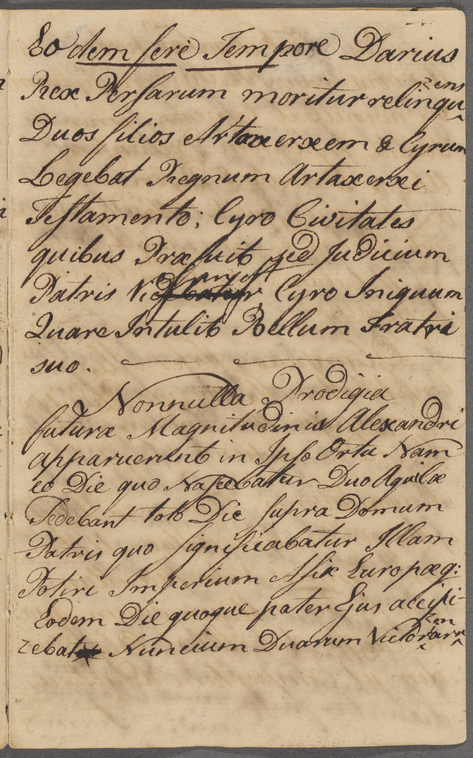 Eo dem fere Tempore Darius
Rex Persarum moritur relinquens
Duos filios Artaxerxem & Cyrum
Legebat Regnum Artaxerxi
Testamento; Cyro Civitates
quibus Præfuit sed Judicium
Patris Cyro Iniquum
Quare Intulit Bellum Fratri
suo.
Nonnulla Prodigia
futuræ Magnitudinis Alexandri
apparuerunt in Ipso Ortu Nam
eo Die quo Nascebatur Duo Aquilæ
Sedebant toto Die supra Domum
Patris quo significabatur Illam
Potiri Imperium Asiæ Europæq;
Eodem Die quoque pater Ejus accipi-
ebat Nuncium Duarum Victorarum